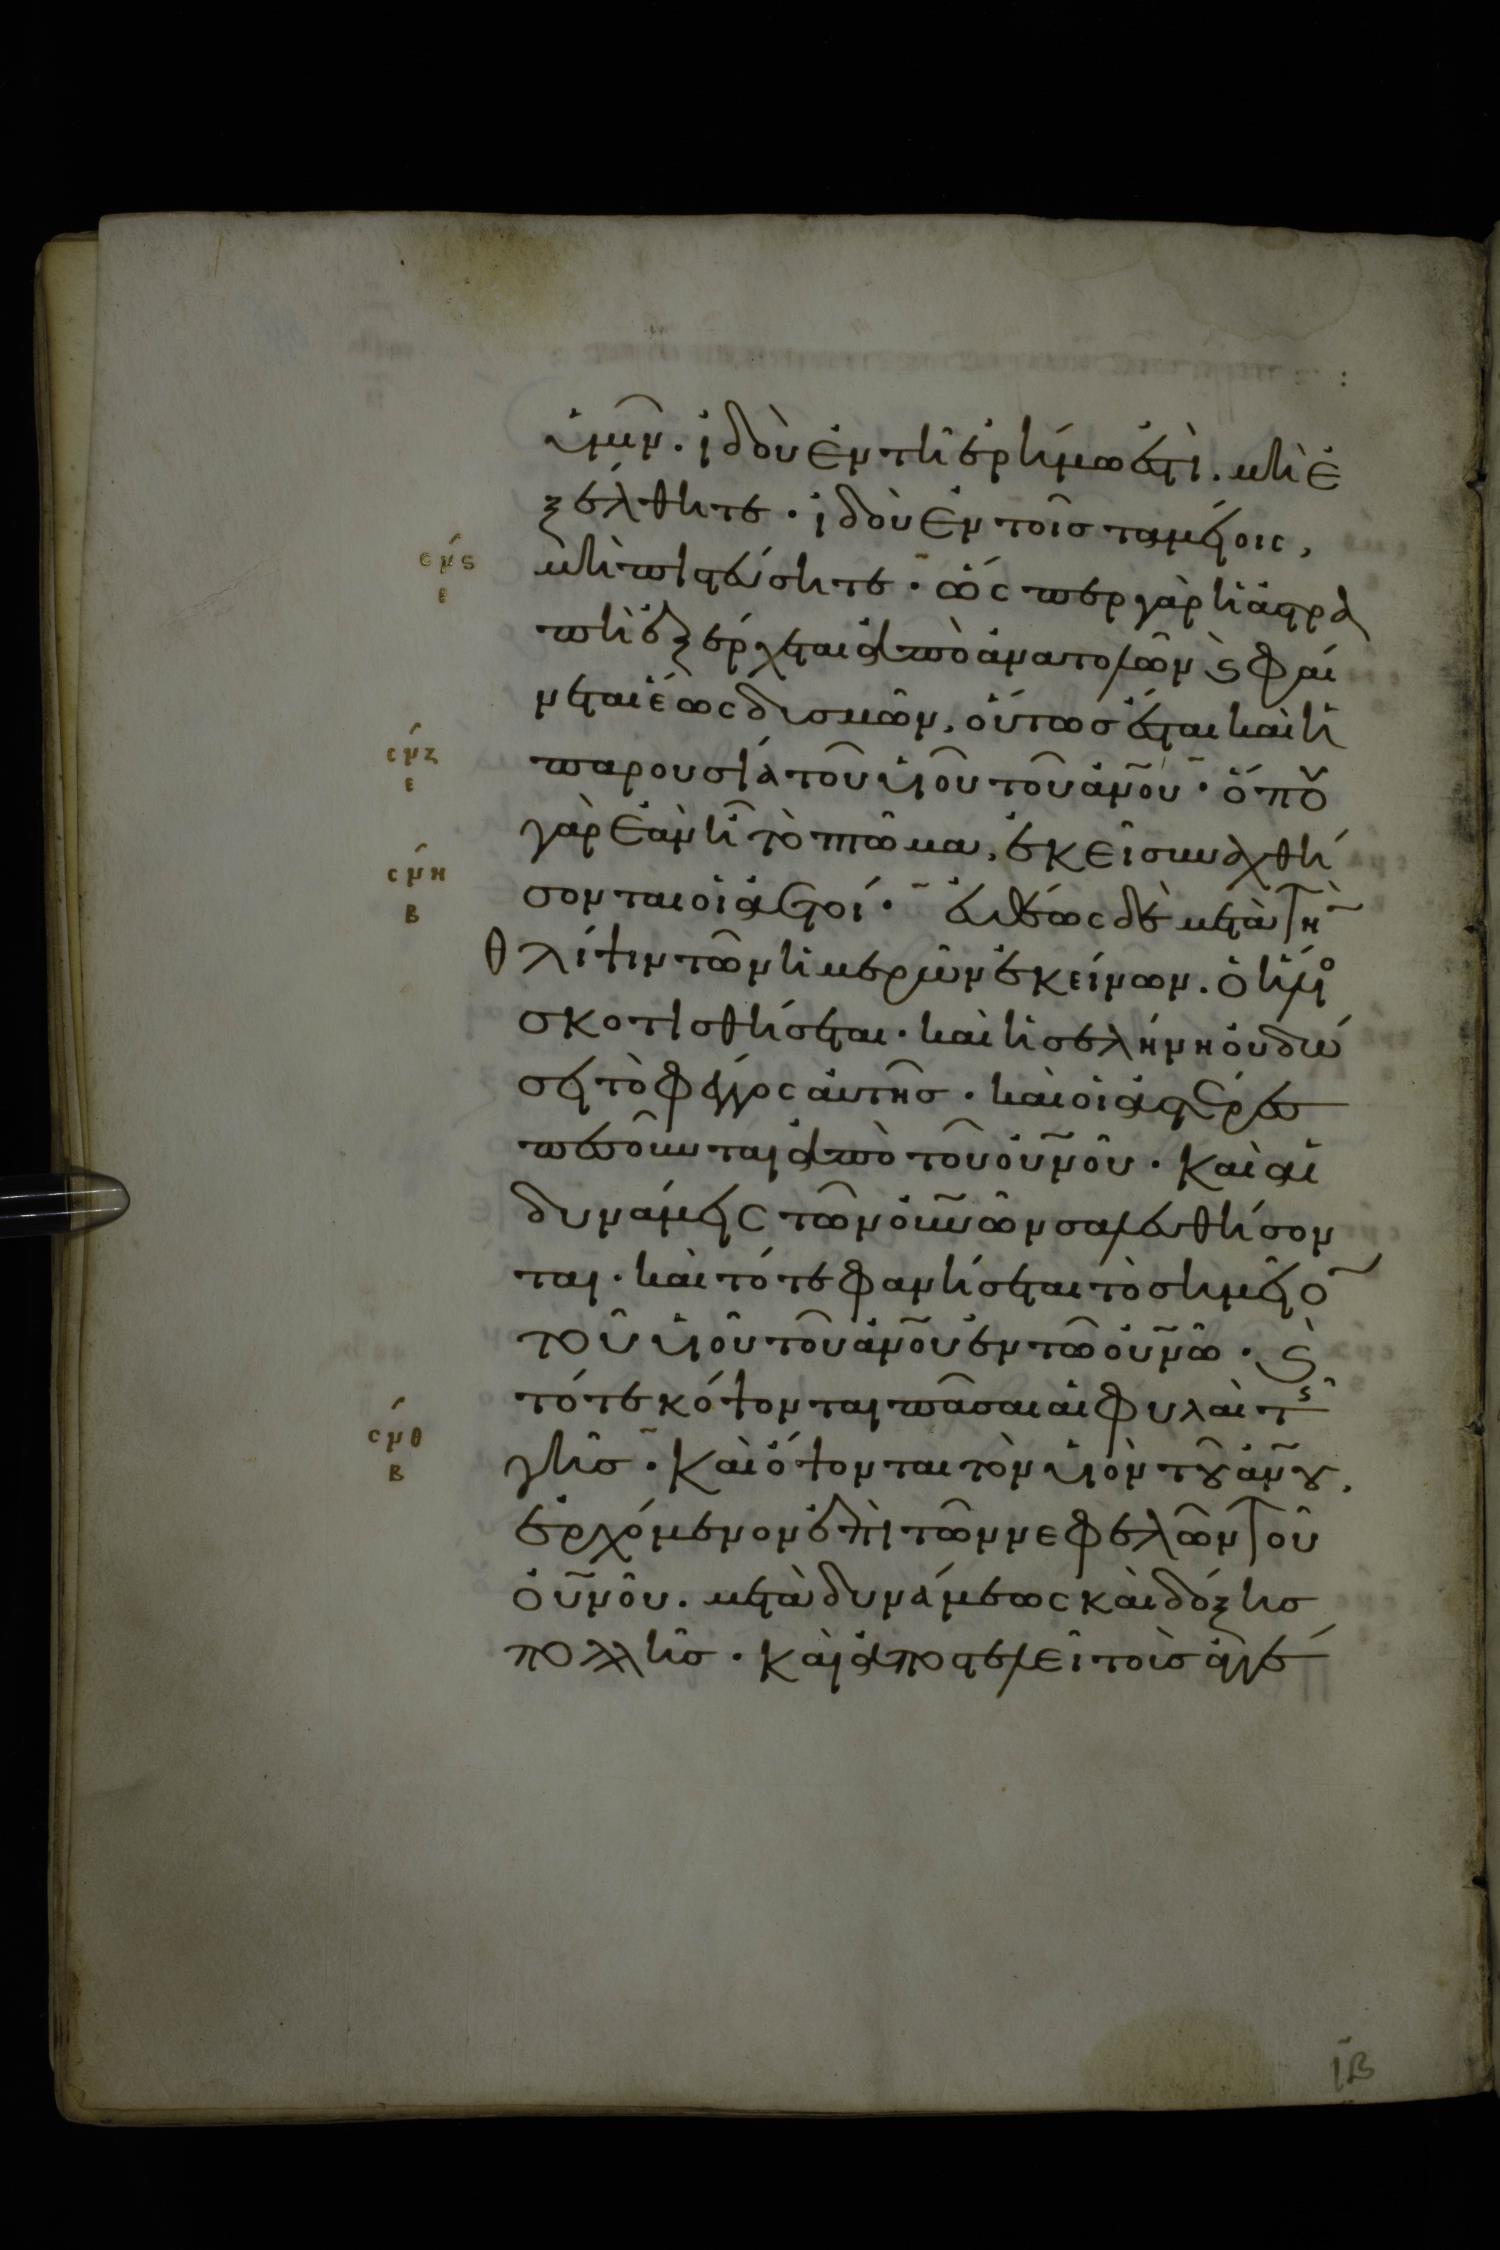 ὑμῖν. ἰδοὺ ἐν τῆ ἐρήμω ἐστὶ. μὴ ἐ
ξέλθητε. ἰδοὺ ἐν τοῖσ ταμείοις,
σμς
ε
μὴ πιστεύσητε. ὥς περ γὰρ ἡ ἀστρα
πὴ ἐξέρχεται ἀπὸ ἀνατολῶν ϗ φαί
νεται ἕως δυσμῶν, οὕτωσ ἔσται καὶ ἡ
σμζ
ε
παρουσία τοῦ υἱοῦ τοῦ ἀν̅ου. ὅπου
γὰρ ἐὰν ἦ τὸ πτῶμα, ἐκεῖ συναχθή
σμη
β
σονται οἱ ἀετοί. εὐθέως δὲ μετὰ τὴν
θλίψιν τῶν ἡμερῶν ἐκείνων. ὁ ἥλιος
σκοτισθήσεται. καὶ ἡ σελήνη οὐ δώ
σει τὸ φέγγος αὐτῆσ. καὶ οἱ ἀστέρες
πεσοῦνται ἀπὸ τοῦ οὐν̅οῦ. καὶ αἱ
δυνάμεις τῶν οὐν̅ῶν σαλευθήσον
ται. καὶ τότε φανήσεται τὸ σημεῖον
τοῦ υἱοῦ τοῦ ἀν̅ου ἐν τῶ οὐν̅ῶ. ϗ
τότε κόψονται πᾶσαι αἱ φυλαὶ τῆς
σμθ
β
γῆσ. καὶ ὄψονται τὸν υἱὸν τοῦ ἀν̅ου,
ἐρχόμενον ἐπὶ τῶν νεφελῶν τοῦ
οὐν̅οῦ. μετὰ δυνάμεως καὶ δόξησ
πολλῆσ. καὶ ἀποστελεῖ τοὺσ ἀγγέ
ιβ